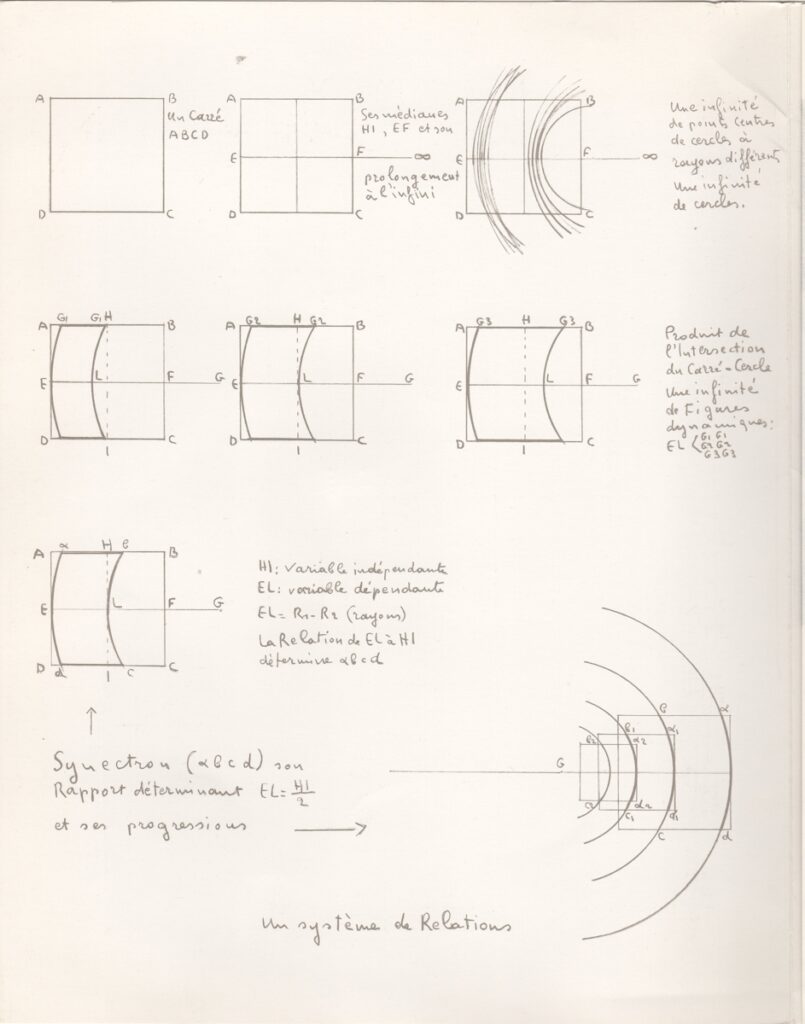 A B
Un Carré
ABCD
D C
A B
Ses médianes
HI, EF et son
E F ∞
prolongement
à l'infini
D C
A B
E F ∞
D C
Une infinité
de points centres
de cercles à
rayons différents
Une infinité
de cercles.
A G1 G1 H B
E L F G
D I C
A G2 H G2 B
E L F G
D I C
A G3 H G3 B
E L F G
D I C
Produit de
l'Intersection
du Carré-Cercle
Une infinité
de Figures
dynamiques:
EL < G1 G1
G2 G2
G3 G3
A a H b B
E L F G
D d I c C
HI: variable indépendante
EL: variable dépendante
EL = R1-R2 (rayons)
La Relation de EL à HI
détermine abcd
↑
Synectron (abcd) son
Rapport déterminant EL = HI/2
et ses progressions →
b a
b1 a1
b2 a2
G
c2 d2
c1 d1
c d
Un système de Relations